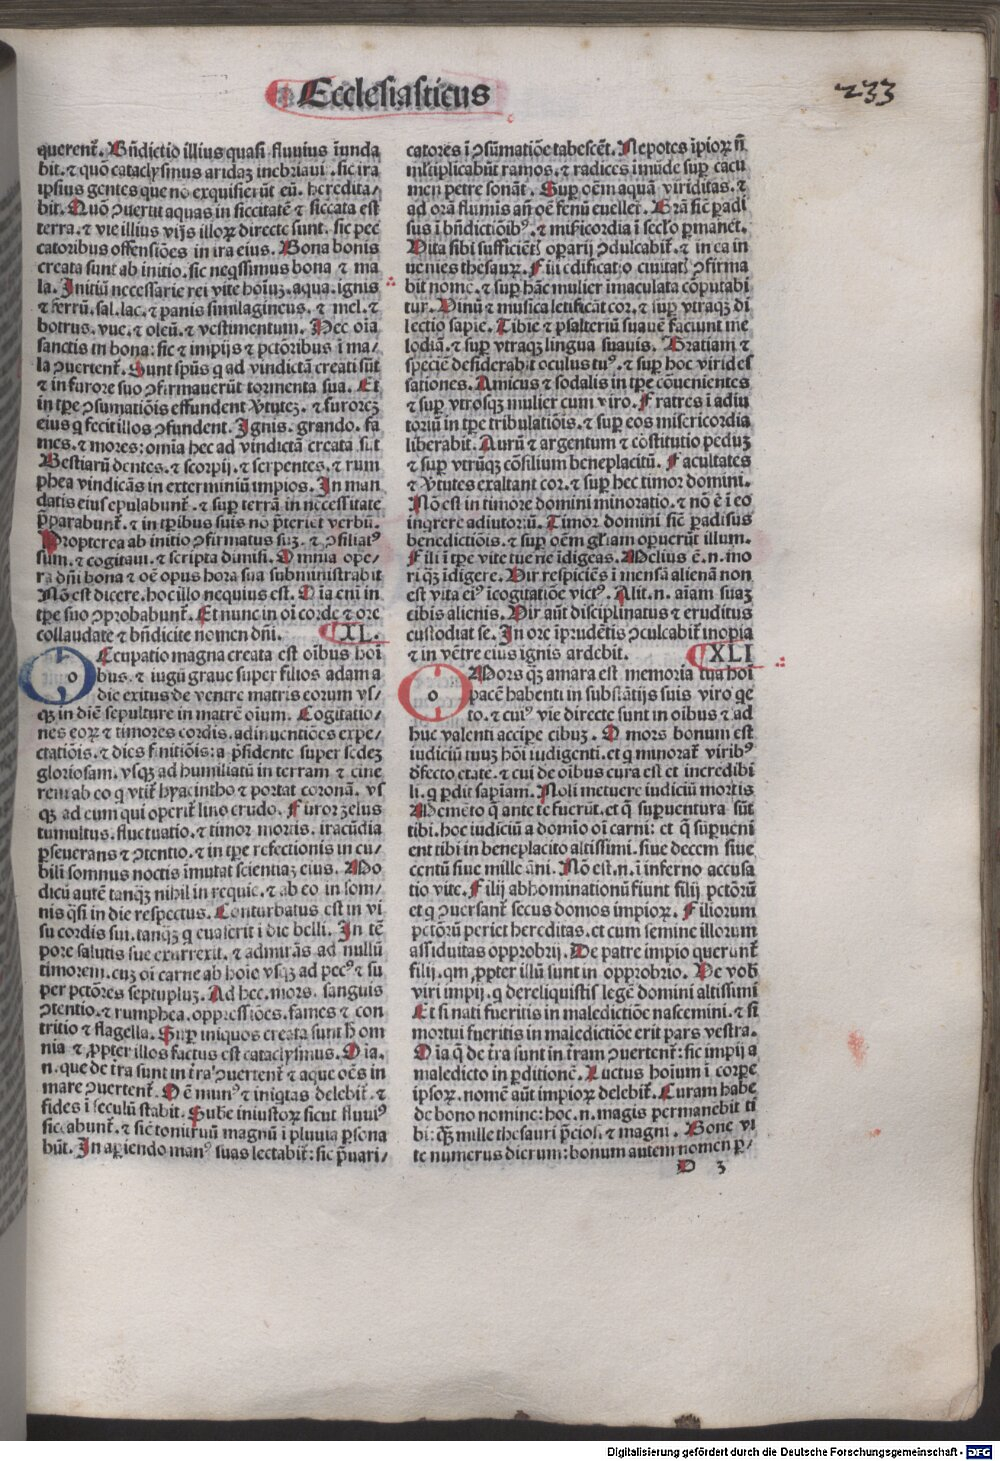 Ecclesiasticus
233
querent᷑. Bn̄dictio illius quasi fluuius īunda
bit. ⁊ quō cataclysmus aridaꝫ inebriaui. sic ira
ipsius gentes que nō exquisierūt eū. heredita/
bit. Quō ꝯuertit aquas in siccitatē ⁊ siccata est
terra. ⁊ vie illius vijs illoꝝ directe sunt. sic pec
catoribus offensiōes in ira eius. Bona bonis
creata sunt ab initio. sic neqssimus bona ⁊ ma
la. Initiū necessarie rei vite hoīuꝫ. aqua. ignis
⁊ ferrū. sal. lac. ⁊ panis similagineus. ⁊ mel. ⁊
botrus. vue. ⁊ oleū. ⁊ vestimentum. Hec oīa
sanctis in bona: sic ⁊ impijs ⁊ pctōribus ī ma/
la ꝯuertent᷑. Sunt spūs q ad vindictā creati sūt
⁊ in furore suo ꝯfirmauerūt tormenta sua. Et
in tꝑe ꝯsumatiōis effundent ꝟtuteꝫ. ⁊ furoreꝫ
eius q fecit illos ꝯfundent. Ignis. grando. fa
mes. ⁊ mores: omīa hec ad vindictā creata sūt
Bestiarū dentes. ⁊ scorpij. ⁊ serpentes. ⁊ rum
phea vindicās in exterminiū impios. In man
datis eius epulabunt᷑. ⁊ suꝑ terrā in necessitate
p̄parabunt᷑. ⁊ in tꝑibus suis no p̄teriet verbū.
Propterea ab initio ꝯfirmatus suꝫ. ⁊ ꝯsiliatꝰ
sum. ⁊ cogitaui. ⁊ scripta dimisi. Omnia ope/
ra dn̄i bona ⁊ oē opus hora sua subministrabit
Nō est dicere. hoc illo nequius est. Oīa enī in
tꝑe suo ꝯprobabunt᷑. Et nunc in oī corde ⁊ ore
collaudate ⁊ bn̄dicite nomen dn̄i. XL.
o Ccupatio magna creata est oībus hoī
bus. ⁊ iugū graue super filios adam a
die exitus de ventre matris eorum vs/
qꝫ in diē sepulture in matrē oīum. Cogitatio/
nes eoꝝ ⁊ timores cordis. adinuentiōes expe/
ctatiōis. ⁊ dies finitiōis: a p̄sidente super sedeꝫ
gloriosam. vsqꝫ ad humiliatū in terram ⁊ cine
rem ab eo q vtit᷑ hyacintho ⁊ portat coronā. vs
qꝫ ad eum qui operit᷑ lino crudo. Furor zelus
tumultus. fluctuatio. ⁊ timor mortis. iracūdia
ꝑseuerans ⁊ ꝯtentio. ⁊ in tꝑe refectionis in cu/
bili somnus noctis īmutat scientiaꝫ eius. Mo
dicū autē tanqꝫ nihil in requie. ⁊ ab eo in som/
nis q̄si in die respectus. Conturbatus est in vi
su cordis sui. tanqꝫ q euaserit ī die belli. In tē
pore salutis sue exurrexit. ⁊ admirās ad nullū
timorem. cuꝫ oī carne ab hoīe vsqꝫ ad pecꝰ ⁊ su
per pctōres septupluꝫ. Ad hec. mors. sanguis
ꝯtentio. ⁊ rumphea. oppressiōes. fames ⁊ con
tritio ⁊ flagella. Suꝑ iniquos creata sunt h̄ om
nia ⁊ ꝓpter illos factus est cataclysmus. Oīa.
n. que de tr̄a sunt in tr̄a ꝯuertent᷑ ⁊ aque oēs in
mare ꝯuertent᷑. Oē munꝰ ⁊ iniq̄tas delebit᷑. ⁊
fides ī seculū stabit. Sube iniustoꝝ sicut fluuiꝰ
siccabunt᷑. ⁊ sic̄ tonitruū magnū ī pluuia ꝑsona
būt. In aꝑiendo manꝰ suas lectabit᷑: sic p̄uari/
catores ī ꝯsūmatiōe tabescēt. Nepotes īpioꝝ n̄
mltiplicabūt ramos. ⁊ radices imūde suꝑ cacu
men petre sonāt. Suꝑ oēm aquā viriditas. ⁊
ad orā flumīs an̄ oē fenū euellet᷑. Grā sic̄ ꝑadi
sus ī bn̄dictiōibꝰ. ⁊ mīsericordia ī secl̄o ꝑmanet.
Vita sibi sufficiētꝭ oparij ꝯdulcabit᷑. ⁊ in ea in
uenies thesauꝝ. Filii edificatio ciuitatꝭ ꝯfirma
bit nomē. ⁊ suꝑ hāc mulier īmaculata cōputabi
tur. Vinū ⁊ musica letificāt cor. ⁊ suꝑ vtraqꝫ di
lectio sapie. Tibie ⁊ psalteriū suauē faciunt me
lodiā. ⁊ suꝑ vtraqꝫ lingua suauis. Gratiam ⁊
speciē desiderabit oculus tuꝰ. ⁊ suꝑ hoc virides
sationes. Amicus ⁊ sodalis in tꝑe cōuenientes
⁊ suꝑ vtrosqꝫ mulier cum viro. Fratres ī adiu
toriū in tꝑe tribulatiōis. ⁊ suꝑ eos misericordia
liberabit. Aurū ⁊ argentum ⁊ cōstitutio peduꝫ
⁊ suꝑ vtrūqꝫ cōsilium beneplacitū. Facultates
⁊ ꝟtutes exaltant cor. ⁊ suꝑ hec timor domini.
Nō est in timore domini minoratio. ⁊ nō ē ī eo
inqrere adiutoriū. Timor domini sic̄ ꝑadisus
benedictiōis. ⁊ suꝑ oēm gl̄iam oꝑuerūt illum.
Fili ī tꝑe vite tue ne īdigeas. Melius ē. n. mo
ri qꝫ īdigere. Vir respiciēs ī mensā alienā non
est vita eiꝰ īcogitatiōe victꝰ. Alit. n. aīam suaꝫ
cibis alienis. Vir aūt disciplinatus ⁊ eruditus
custodiat se. In ore īprudētis ꝯculcabit᷑ inopia
⁊ in vētre eius ignis ardebit. XLI
o Mors qꝫ amara est memoria tua hoī
pacē habenti in substātijs suis viro qe
to. ⁊ cuiꝰ vie directe sunt in oībus ⁊ ad
huc valenti accipe cibuꝫ. O mors bonum est
iudiciū tuuꝫ hōi iudigenti. et q minorat᷑ viribꝰ
dfecto etate. ⁊ cui de oībus cura est et incredibi
li. q ꝑdit sapīam. Noli metuere iudiciū mortis
Memēto q̄ ante te fuerūt. et q̄ suꝑuentura sūt
tibi. hoc iudiciū a domīo oī carni: et q̄ suꝑueni
ent tibi in beneplacito altissimi. siue decem siue
centū siue mille āni. Nō est. n. ī inferno accusa
tio vite. Filij abhominationū fiunt filij pctōrū
et q ꝯuersant᷑ secus domos impioꝝ. Filiorum
pctōrū periet hereditas. et cum semine illorum
assiduitas opprobrij. De patre impio querunt᷑
filij. qm̄ ꝓpter illū sunt in opprobrio. Ve vob̄
viri impij. q dereliquistis legē domini altissimi
Et si nati fueritis in maledictiōe nascemini. ⁊ si
mortui fueritis in maledictiōe erit pars vestra.
Oīa q̄ de tr̄a sunt in tr̄am ꝯuertent᷑: sic impij a
maledicto in ꝑditionē. Luctus hoīum ī corꝑe
ipsoꝝ. nomē aūt impioꝝ delebit᷑. Curam habe
de bono nomine: hoc. n. magis permanebit ti
bi: qꝫ mille thesauri p̄ciosi. ⁊ magni. Bone vi
te numerus dierum: bonum autem nomen ꝑ/
D 3
Digitalisierung gefördert durch die Deutsche Forschungsgemeinschaft - DFG